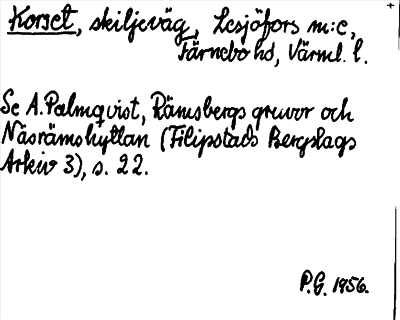 Korset, skiljeväg, Lesjöfors m:e,
Färnebo hd, Värml. l.
Se A. Palmqvist, Rämsbergs gruvor och
Näsrämshyttan (Filipstads Bergslags
Arkiv 3), s. 22.
P.G. 1956.